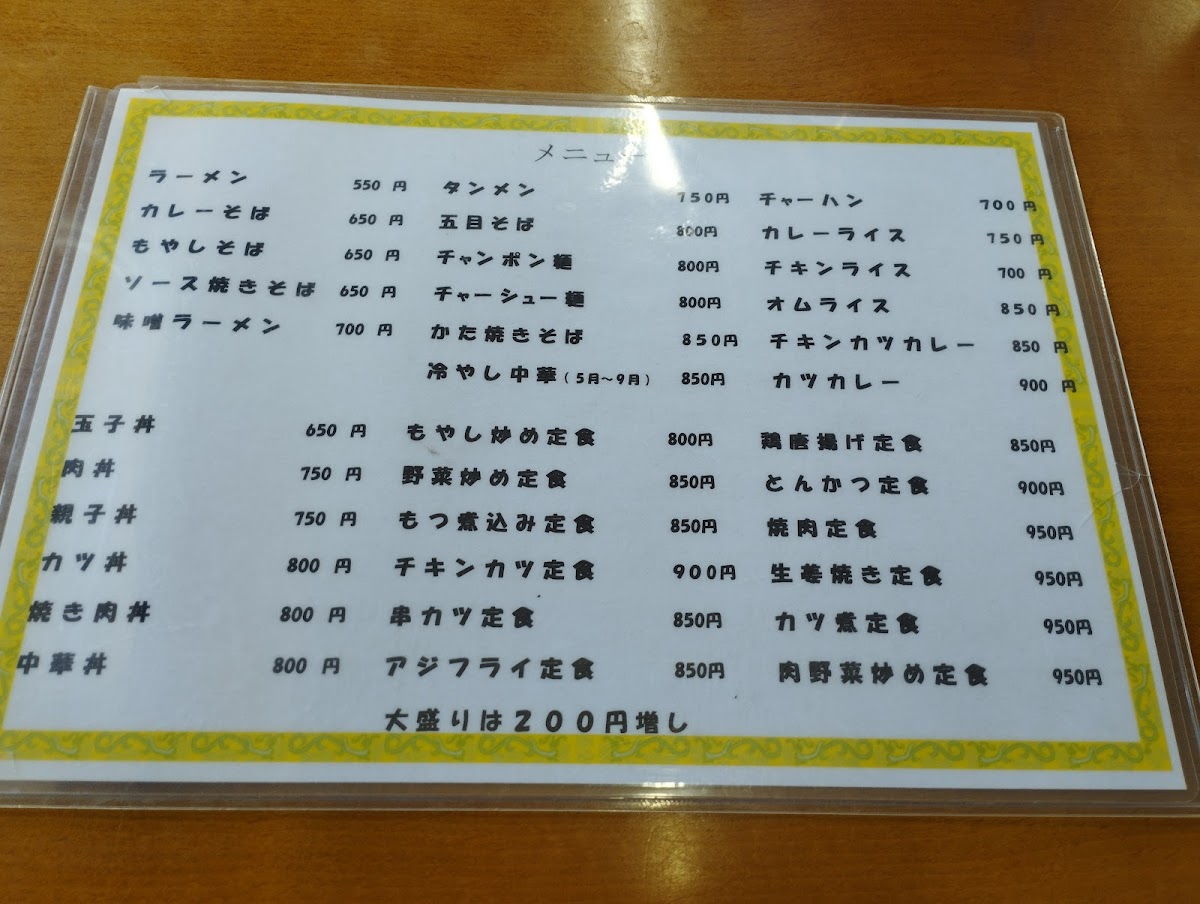 メニュー
ラーメン 550 円
カレーそば 650 円
もやしそば 650 円
ソース焼きそば 650 円
味噌ラーメン 700 円
タンメン 750円
五目そば 800円
チャンポン麺 800円
チャーシュー麺 800円
かた焼きそば 850円
冷やし中華(5月~9月) 850円
チャーハン 700円
カレーライス 750円
チキンライス 700 円
オムライス 850円
チキンカツカレー 850 円
カツカレー 900 円
玉子丼 650 円
肉丼 750 円
親子丼 750 円
カツ丼 800 円
焼き肉丼 800 円
中華丼 800 円
もやし炒め定食 800円
野菜炒め定食 850円
もつ煮込み定食 850円
チキンカツ定食 900円
串カツ定食 850円
アジフライ定食 850円
鶏唐揚げ定食 850円
とんかつ定食 900円
焼肉定食 950円
生姜焼き定食 950円
カツ煮定食 950円
肉野菜炒め定食 950円
大盛りは200円増し